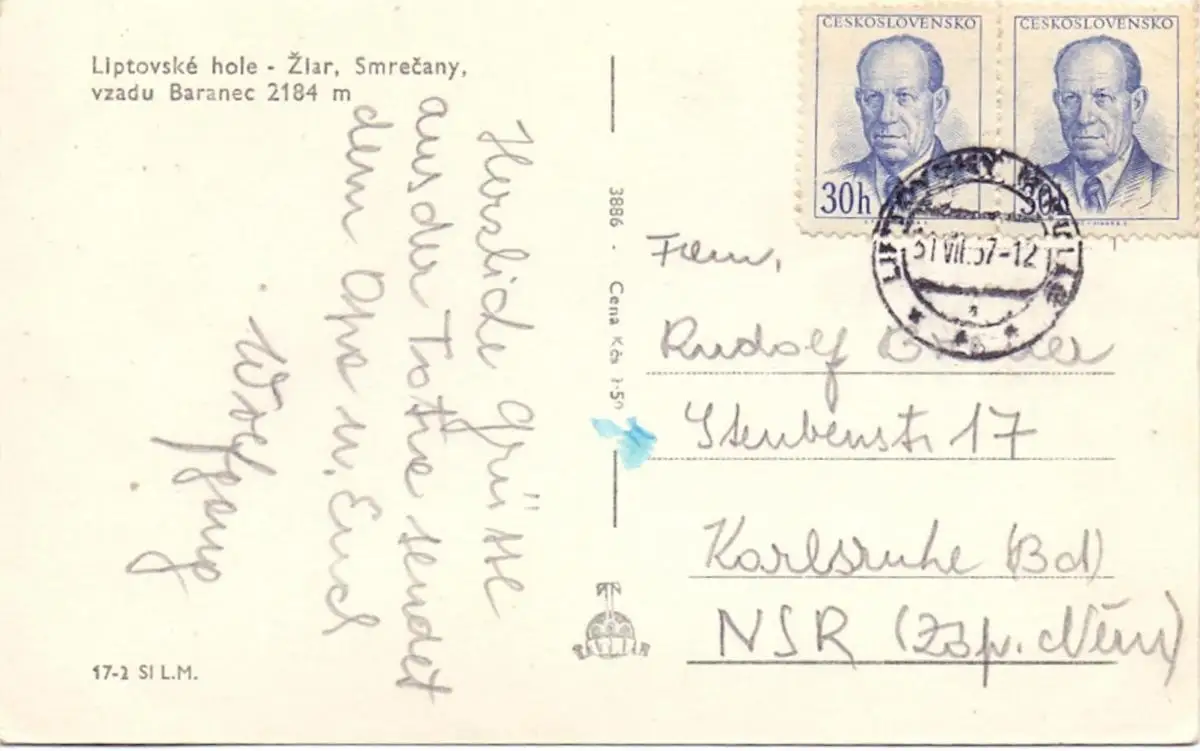 Liptovské hole - Žiar, Smrečany,
vzadu Baranec 2184 m
Herzliche Grüsse
aus der Tatra sendet
dem Opa u. Euch
Wolfgang
17-2 SI L.M.
3886 · Cena Kčs 1·50
ČESKOSLOVENSKO
30h
ČESKOSLOVENSKO
30
LIPTOVSKÝ
31 VII.57-12
Fam.
Rudolf
Steubenstr. 17
Karlsruhe (Bd)
NSR (Záp. Něm)